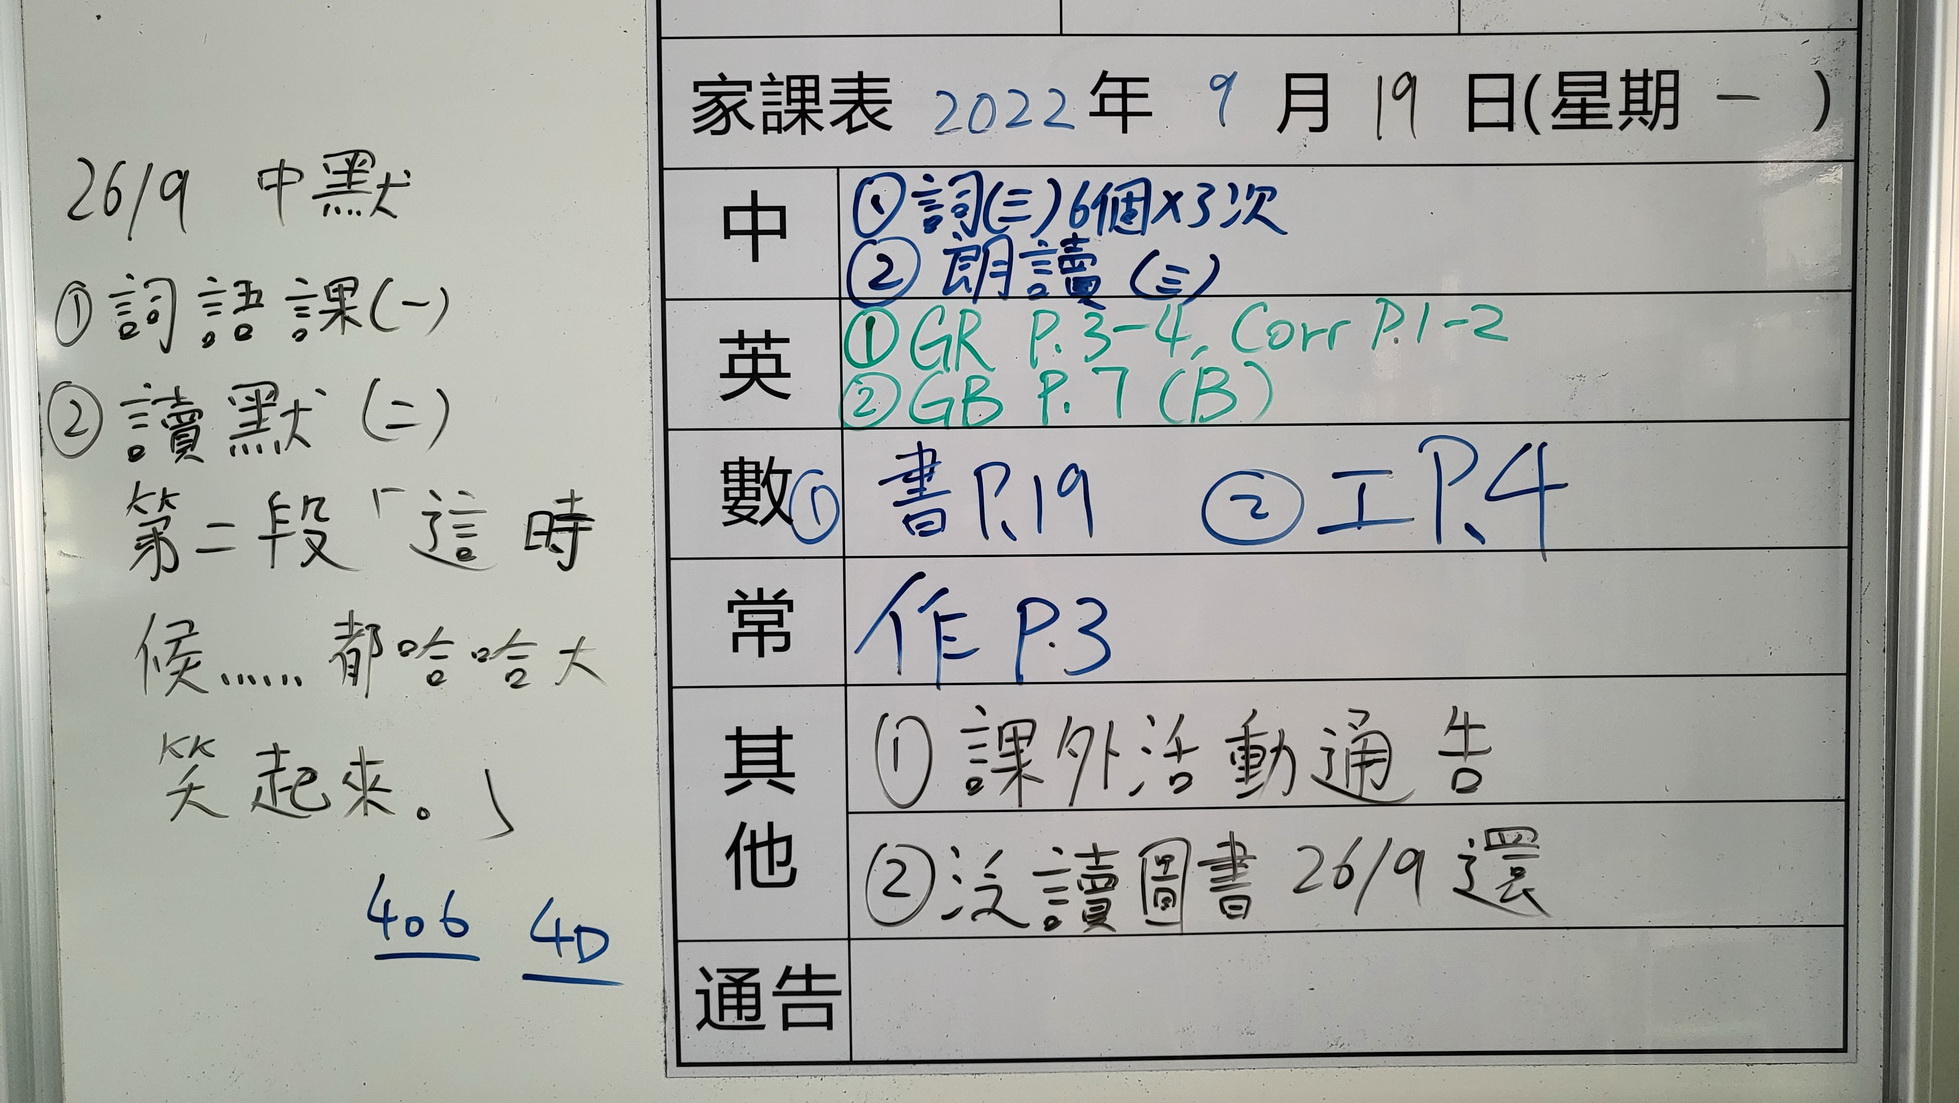 26/9 中默
①詞語課(一)
②讀默(二)
第二段「這時
候......都哈哈大
笑起來。」
406 4D
家課表 2022年 9月 19日(星期一)
中
①詞(三)6個×3次
②朗讀(三)
英
①GR P.3-4, Corr P.1-2
②GB P.7 (B)
數
①書P.19 ②工P.4
常
作P.3
其他
①課外活動通告
②泛讀圖書 26/9還
通告